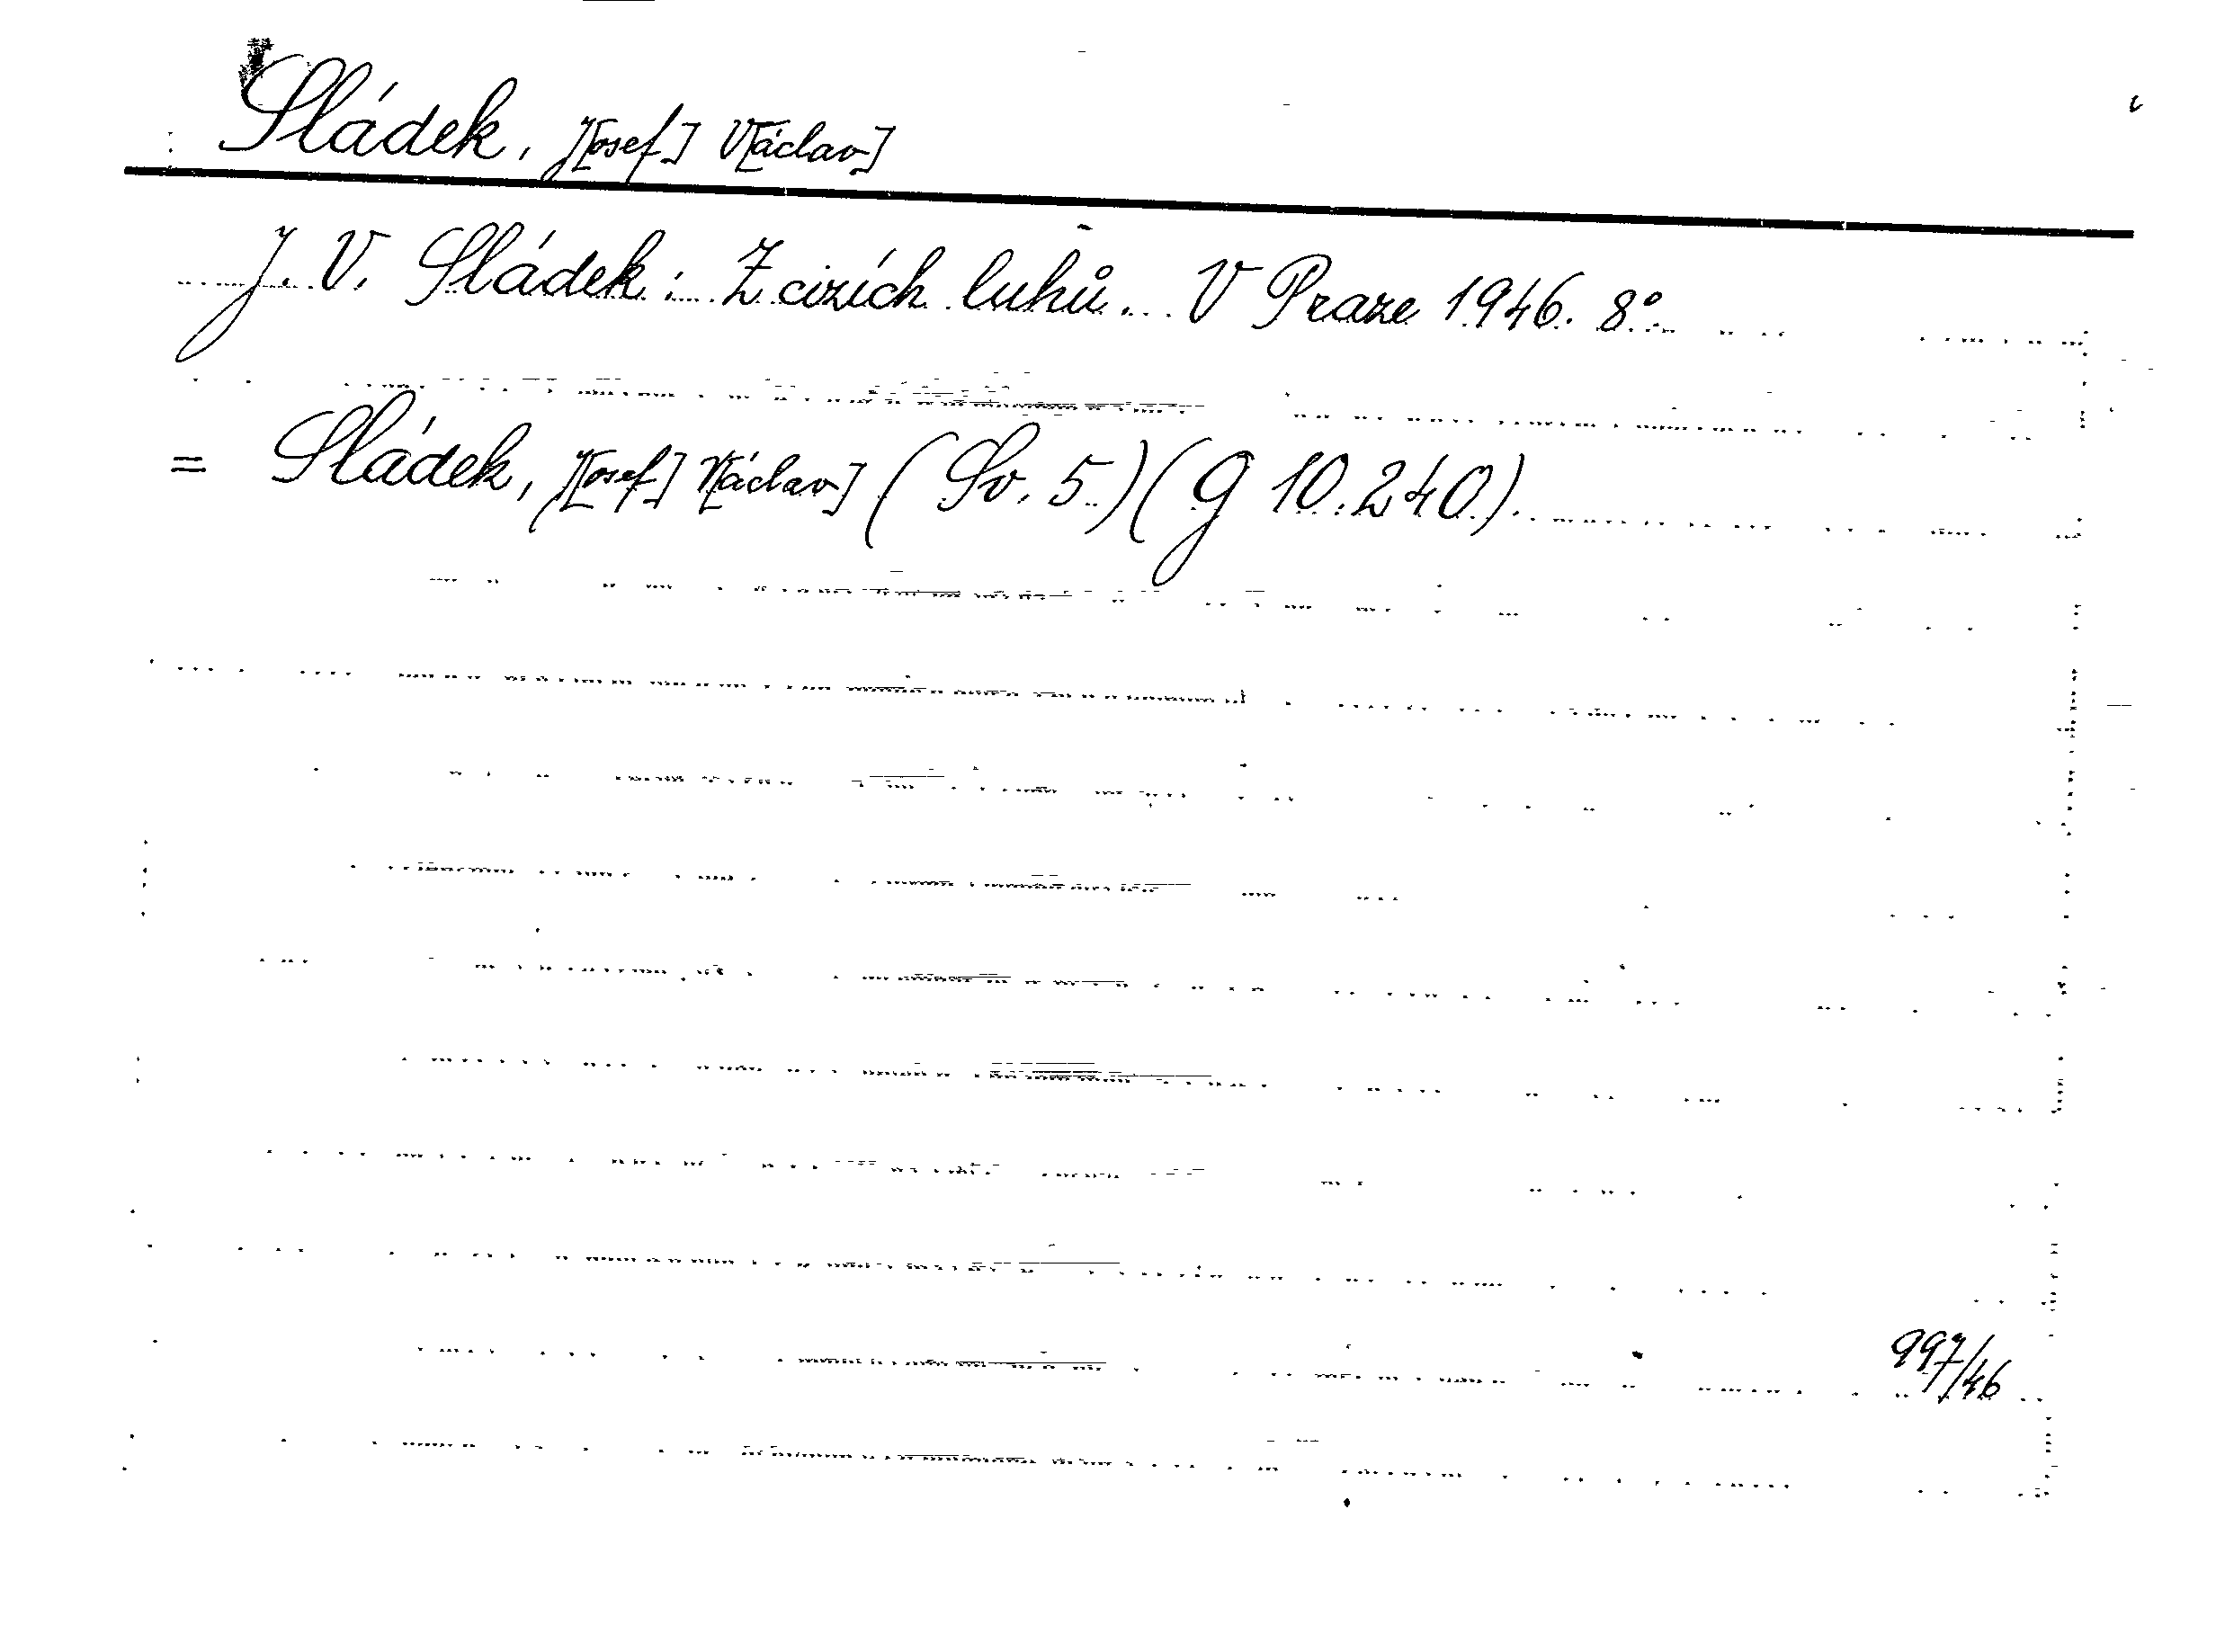 Sládek, J[osef] V[áclav]
J. V. Sládek: Z cizích luhů. V Praze 1946. 8°
= Sládek, J[osef] V[áclav] (Sv. 5.) (G 10.240).
997/46